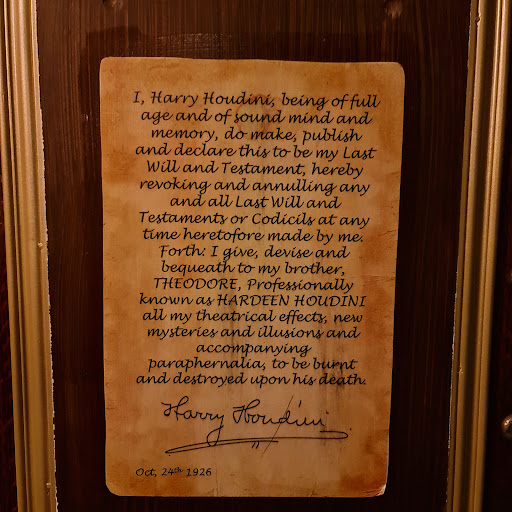 I, Harry Houdini, being of full
age and of sound mind and
memory, do make, publish
and declare this to be my Last
Will and Testament, hereby
revoking and annulling any
and all Last Will and
Testaments or Codicils at any
time heretofore made by me.
Forth: I give, devise and
bequeath to my brother,
THEODORE, Professionally
known as HARDEEN HOUDINI
all my theatrical effects, new
mysteries and illusions and
accompanying
paraphernalia, to be burnt
and destroyed upon his death.
Harry Houdini
Oct, 24th 1926